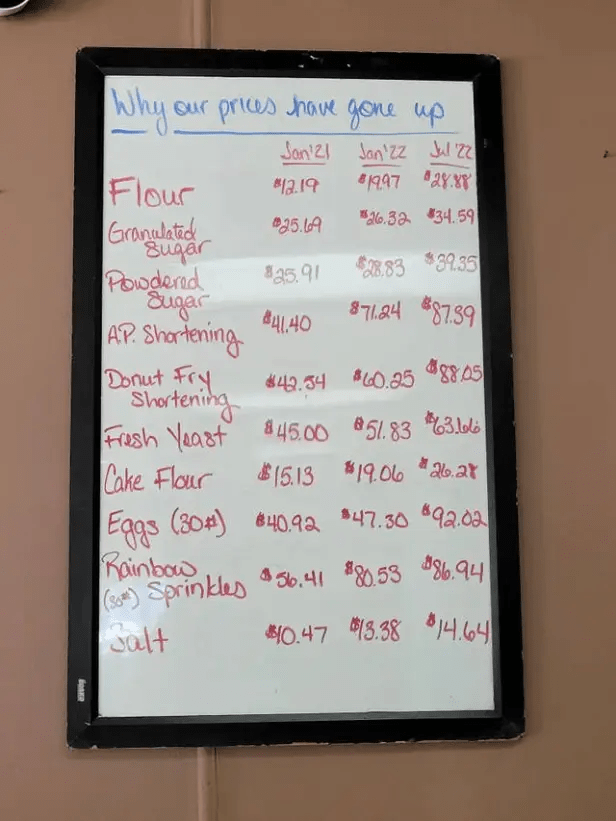 Why our prices have gone up
Jan'21 Jan'22 Jul '22
Flour $12.19 $19.97 $28.88
Granulated Sugar $25.69 $26.32 $34.59
Powdered Sugar $25.91 $28.83 $39.35
A.P. Shortening $41.40 $71.24 $87.39
Donut Fry Shortening $42.54 $60.25 $88.05
Fresh Yeast $45.00 $51.83 $63.66
Cake Flour $15.13 $19.06 $26.28
Eggs (30#) $40.92 $47.30 $92.02
Rainbow (30#) Sprinkles $56.41 $80.53 $86.94
Salt $10.47 $13.38 $14.64
QUARTET